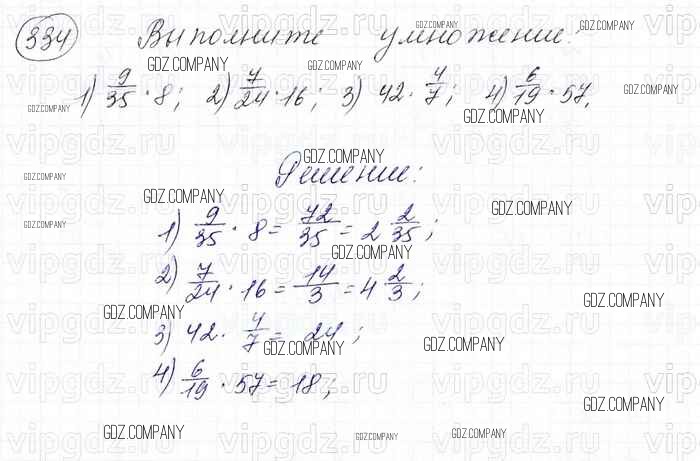 334 Выполните умножение:
1) 9/35 · 8; 2) 7/24 · 16; 3) 42 · 4/7; 4) 6/19 · 57.
Решение:
1) 9/35 · 8 = 72/35 = 2 2/35;
2) 7/24 · 16 = 14/3 = 4 2/3;
3) 42 · 4/7 = 24;
4) 6/19 · 57 = 18;
GDZ.COMPANY
vipgdz.ru